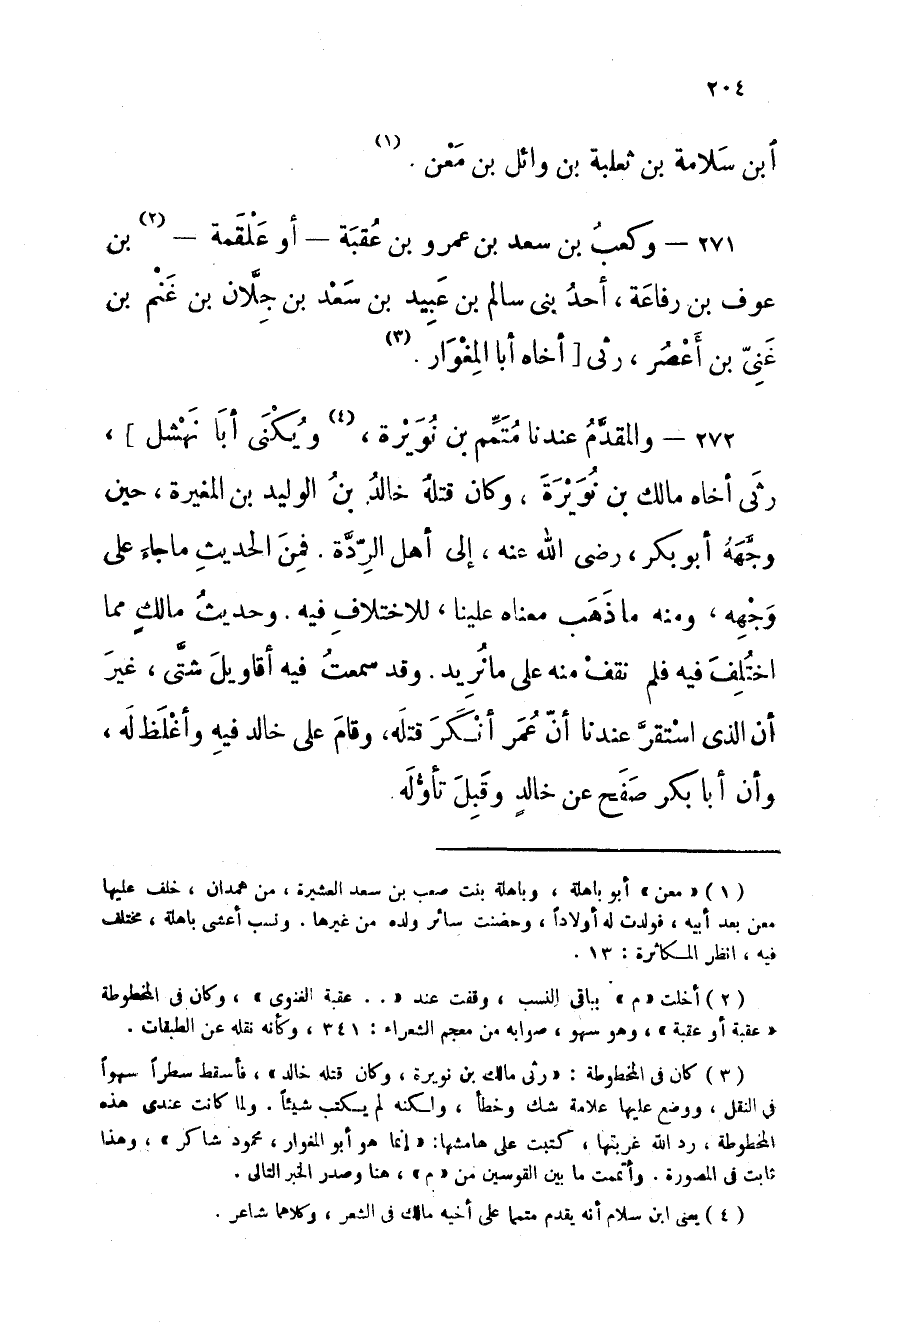 ٢٠٤
أبن سَلامة بن ثعلبة بن وائل بن مَعْن . (١)
٢٧١ – وكعبُ بن سعد بن عمرو بن عُقبَة – أو عَلْقمة – (٢) بن
عوف بن رفاعَة ، أحدُ بنى سالم بن عَبِيد بن سَعْد بن جِلَّان بن غَنْم بن
غَنِيّ بن أَعْصُر ، رثى [ أخاه أبا المِغْوَار . (٣)
٢٧٢ – والمقدَّمُ عندنا مُتَمِّم بن نُوَيْرة ، (٤) ويُكْنَى أبَا نَهْشل ] ،
رثَى أخاه مالك بن نُوَيْرَةَ ، وكان قتلهُ خالدُ بنُ الوليد بن المغيرة ، حين
وجَّهَهُ أبو بكر ، رضى الله عنه ، إلى أهل الرِّدَّة . فمِنَ الحديثِ ماجاء على
وَجْهِه ، ومنه ما ذَهَب معناه علينا ، للاختلافِ فيه . وحديثُ مالكٍ مما
اختُلِفَ فيه فلم نقفْ منه على ما نُرِيد . وقد سمعتُ فيه أقاويلَ شتَّى ، غيرَ
أن الذى اسْتقرَّ عندنا أنّ عُمَر أنْكَرَ قتلَه، وقامَ على خالد فيهِ وأغْلَظ لَه ،
وأن أبا بكر صَفَح عن خالدٍ وقَبِلَ تأوُّلَه .
( ١ ) « معن » أبو باهلة ، وباهلة بنت صعب بن سعد العشيرة ، من همدان ، خلف عليها
معن بعد أبيه ، فولدت له أولاداً ، وحضنت سائر ولده من غيرها . ونسب أعشى باهلة ، مختلف
فيه ، انظر المكاثرة : ١٣ .
( ٢ ) أخلت « م » بباقى النسب ، وقفت عند « . . عقبة الغنوى » ، وكان فى المخطوطة
« عقبة أو عقبة » ، وهو سهو ، صوابه من معجم الشعراء : ٣٤١ ، وكأنه نقله عن الطبقات .
( ٣ ) كان فى المخطوطة : « رثى مالك بن نويرة ، وكان قتله خالد » ، فأسقط سطراً سهواً
فى النقل ، ووضع عليها علامة شك وخطأ ، ولكنه لم يكتب شيئاً . ولما كانت عندى هذه
المخطوطة ، رد الله غربتها ، كتبت على هامشها: « إنما هو أبو المغوار ، محمود شاكر » ، وهذا
ثابت فى المصورة . وأتممت ما بين القوسين من « م » ، هنا وصدر الخبر التالى .
( ٤ ) يعنى ابن سلام أنه يقدم متمما على أخيه مالك فى الشعر ، وكلاهما شاعر .